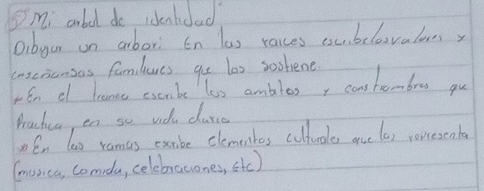 5 Mi arbol de identidad
Dibujar un arbol: En las raices escribe los valores y
enseñansas familiares que los sostiene.
* En el tronco escribe los ambitos y constrombres que
Practica en su vida diaria
* En las ramas escribe elementos culturales que los representa
(musica, comida, celebraciones, etc)